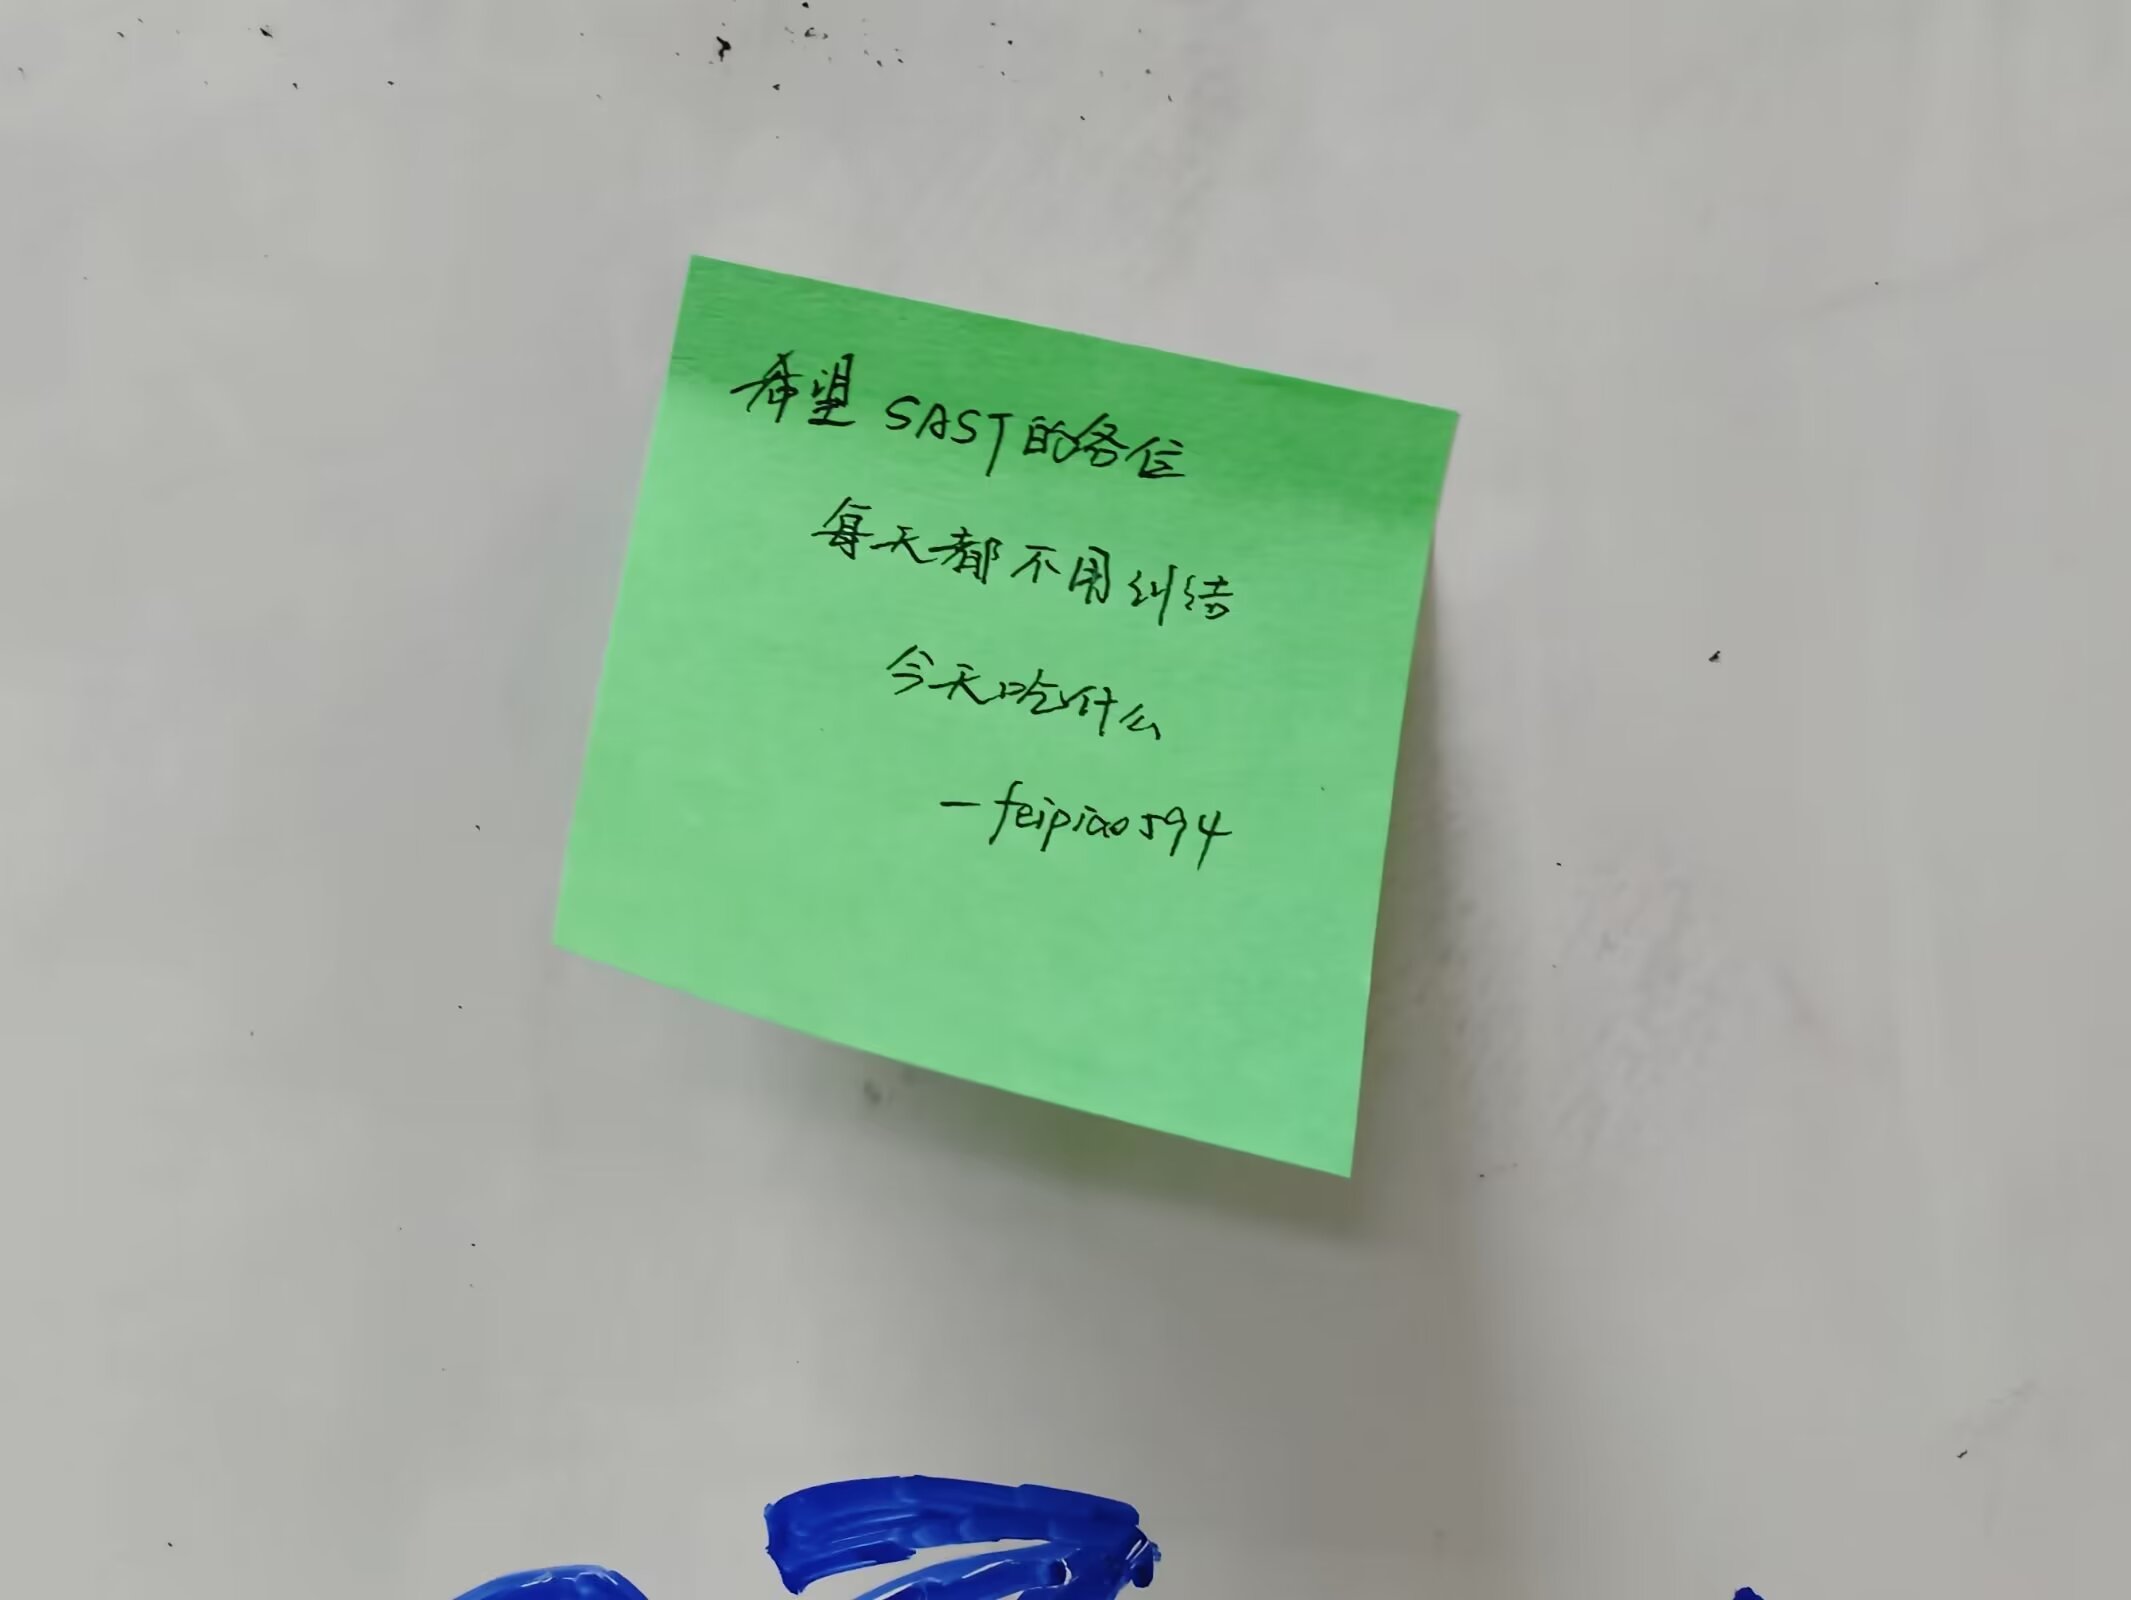 希望 SAST的各位
每天都不用纠结
今天吃什么
—feipiao594